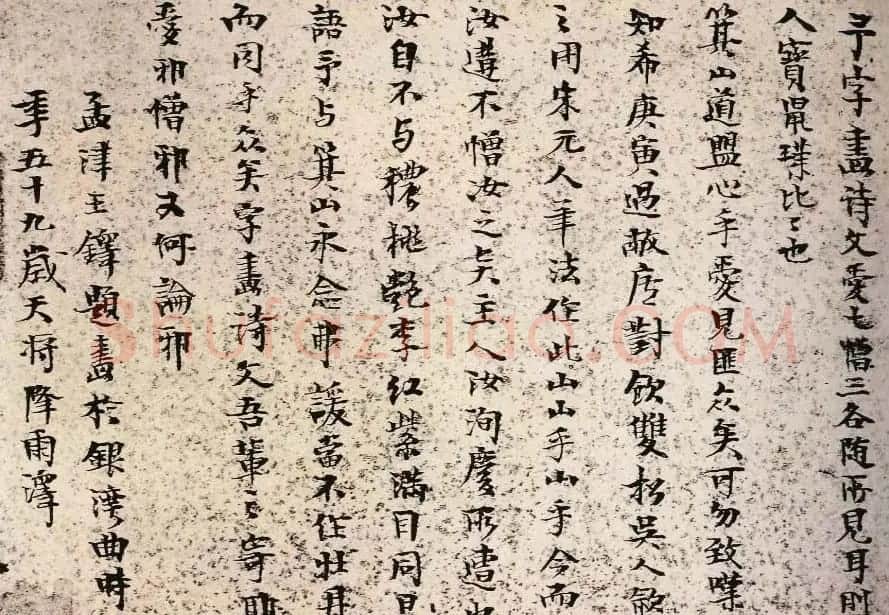 予字畫詩文愛七憎三各随所見耳則
人寶鼠璞比比也
箕山道盟心乎愛見匪众矣可勿致嘆
知希庚寅過敝店對飲雙松吳人飲
之用朱元人筆法作此山山乎山乎今而
汝遘不憎汝之矣主人汝洵慶所遭也
汝自不与穠桃艷李红紫满目同日
語予与箕山永念弗諼當不在牡丹
而同乎众矣字畫詩文吾輩之寄耶
愛邪憎邪又何論邪
孟津王鐸題畫於銀湾曲時
年五十九歲天将降雨澤
Shufaziliao.COM